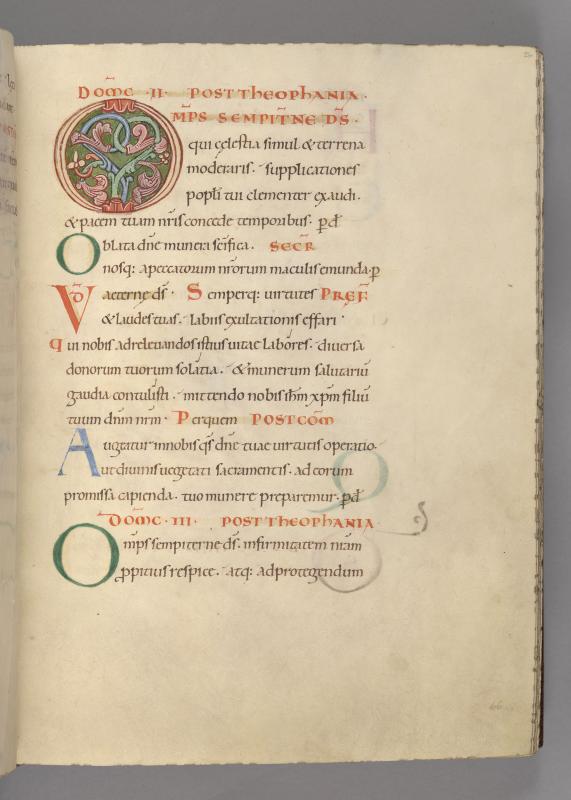 DOMC · II · POST THEOPhANIA ·
OMPS SEMPITNE DS ·
qui celestia simul & terrena
moderaris. supplicationes
popli tui clementer exaudi.
& pacem tuam nris concede temporibus. p d
Oblata dne munera scifica. SECR
nosq: a peccatorum nrorum maculis emunda. p
VD aeterne ds. Semperq: virtutes PREF
& laudes tuas. labiis exultationis effari.
qui nobis ad relevandos istius vitae labores. diversa
donorum tuorum solatia. & munerum salutariu
gaudia contulisti. mittendo nobis ihm xpm filiu
tuum dnm nrm. Per quem POSTCOM
Augeatur in nobis qs dne tuae virtutis operatio.
ut divinis vegetati sacramentis. ad eorum
promissa capienda. tuo munere preparemur. p d
DOMC · III · POST THEOPhANIA
Omps sempiterne ds. infirmitatem nram
ppitius respice. atq: ad protegendum